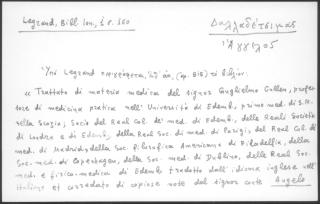 Legrand, Bibl. Ion., I σ. 160
Δαλλαδέτσιμας
Ἄγγελος
Ὑπὸ Legrand περιγράφεται, ὑπ' ἀρ. (616) τὸ βιβλίον.
« Trattato di materia medica del signor Guglielmo Cullen, profes-
sore di medicina pratica nell' Università di Edemb., primo med. di S.M.
nella Scozia, Socio del Real Col. de' med. di Edemb., delle Reali Società
di Londra e di Edemb., della Real Soc. di med. di Parigi del Real Col. di
med. di Madrid, della Soc. filosofica Americana di Filadelfia, della
Soc. med. di Copenhagen, della Soc. med. di Dublino, della Real Soc.
med. e fisico-medica di Edemb. tradotto dall' idioma inglese nell'
italiano et corredato di copiose note dal signor conte Angelo